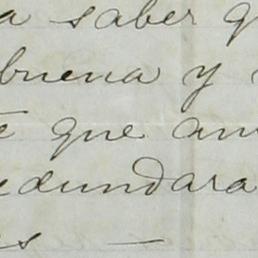 a saber q
buena y
e que au
edundara
es —